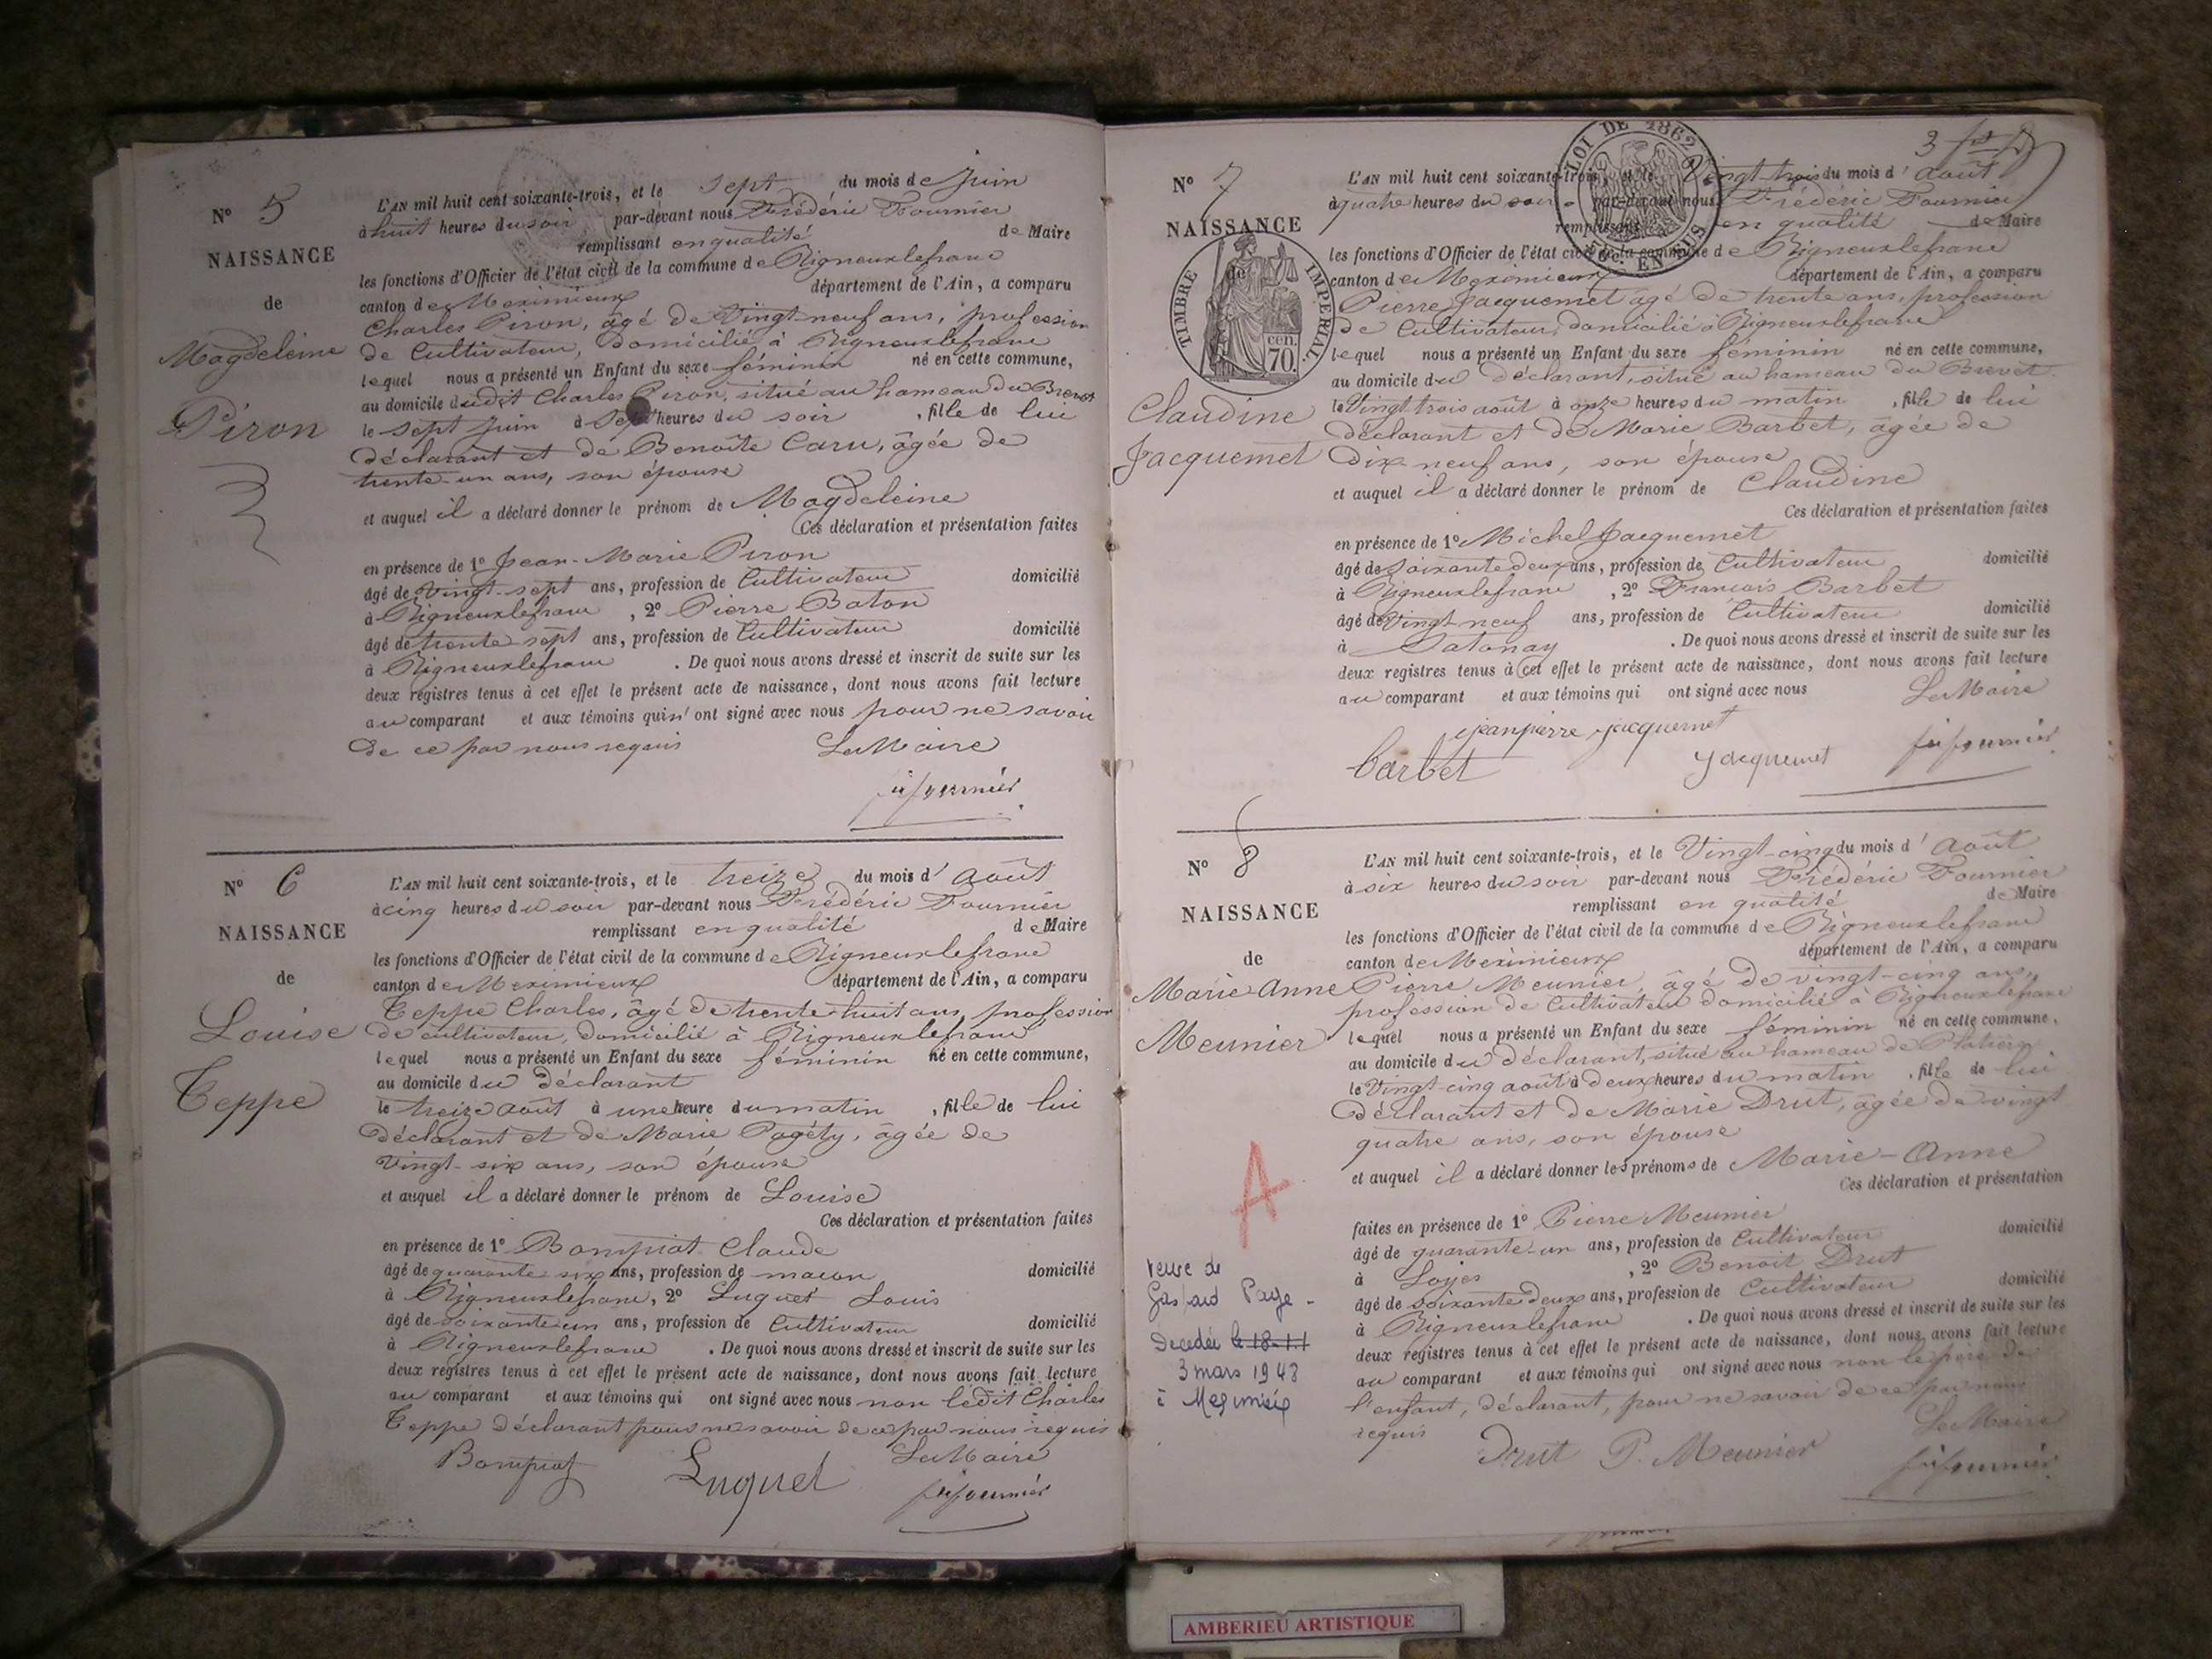 N° 5
NAISSANCE
de
Magdeleine
Piron
L'AN mil huit cent soixante-trois, et le sept du mois de Juin
à huit heures du soir par-devant nous Frédéric Fournier
remplissant en qualité de Maire
les fonctions d'Officier de l'état civil de la commune de Rigneuxlefranc
canton de Meximieux département de l'Ain, a comparu
Charles Piron, âgé de Vingt-neuf ans, profession
de Cultivateur, domicilié à Rigneuxlefranc
lequel nous a présenté un Enfant du sexe féminin né en cette commune,
au domicile dudit Charles Piron, situé au hameau du Brevet
le sept juin à sept heures du soir, fille de lui
déclarant et de Benoîte Caru, âgée de
trente-un ans, son épouse
et auquel il a déclaré donner le prénom de Magdeleine
Ces déclaration et présentation faites
en présence de 1° Jean-Marie Piron
âgé de Vingt-sept ans, profession de Cultivateur domicilié
à Rigneuxlefranc, 2° Pierre Baton
âgé de trente sept ans, profession de Cultivateur domicilié
à Rigneuxlefranc. De quoi nous avons dressé et inscrit de suite sur les
deux registres tenus à cet effet le présent acte de naissance, dont nous avons fait lecture
au comparant et aux témoins qui n'ont signé avec nous pour ne savoir
de ce par nous requis Le Maire
fri fournier
N° 6
NAISSANCE
de
Louise
Teppe
L'AN mil huit cent soixante-trois, et le treize du mois d'Août
à cinq heures du soir par-devant nous Frédéric Fournier
remplissant en qualité de Maire
les fonctions d'Officier de l'état civil de la commune de Rigneuxlefranc
canton de Meximieux département de l'Ain, a comparu
Teppe Charles, âgé de trente huit ans, profession
de cultivateur, domicilié à Rigneuxlefranc
lequel nous a présenté un Enfant du sexe féminin né en cette commune,
au domicile du déclarant
le treize août à une heure du matin, fille de lui
déclarant et de Marie Pagéty, âgée de
Vingt-six ans, son épouse
et auquel il a déclaré donner le prénom de Louise
Ces déclaration et présentation faites
en présence de 1° Bompiat Claude
âgé de quarante six ans, profession de maçon domicilié
à Rigneuxlefranc, 2° Luquet Louis
âgé de soixante un ans, profession de Cultivateur domicilié
à Rigneuxlefranc. De quoi nous avons dressé et inscrit de suite sur les
deux registres tenus à cet effet le présent acte de naissance, dont nous avons fait lecture
au comparant et aux témoins qui ont signé avec nous non ledit Charles
Teppe déclarant pour ne savoir de ce par nous requis
Bompiat Luquet Le Maire
fri fournier
3
LOI DE 1862
N° 7
NAISSANCE
de
TIMBRE IMPERIAL
70 cen.
Claudine
Jacquemet
L'AN mil huit cent soixante-trois, et le Vingt trois du mois d'août
à quatre heures du soir par-devant nous Frédéric Fournier
remplissant en qualité de Maire
les fonctions d'Officier de l'état civil de la commune de Rigneuxlefranc
canton de Meximieux département de l'Ain, a comparu
Pierre Jacquemet âgé de trente ans, profession
de Cultivateur, domicilié à Rigneuxlefranc
lequel nous a présenté un Enfant du sexe féminin né en cette commune,
au domicile du déclarant, situé au hameau du Brevet
le Vingt trois août à onze heures du matin, fille de lui
déclarant et de Marie Barbet, âgée de
Dix neuf ans, son épouse
et auquel il a déclaré donner le prénom de Claudine
Ces déclaration et présentation faites
en présence de 1° Michel Jacquemet
âgé de soixante deux ans, profession de Cultivateur domicilié
à Rigneuxlefranc, 2° François Barbet
âgé de Vingt neuf ans, profession de Cultivateur domicilié
à Satonay. De quoi nous avons dressé et inscrit de suite sur les
deux registres tenus à cet effet le présent acte de naissance, dont nous avons fait lecture
au comparant et aux témoins qui ont signé avec nous Le Maire
jeanpierre jacquemet
barbet Jacquemet fri fournier
N° 8
NAISSANCE
de
Marie Anne
Meunier
L'AN mil huit cent soixante-trois, et le Vingt-cinq du mois d'Août
à six heures du soir par-devant nous Frédéric Fournier
remplissant en qualité de Maire
les fonctions d'Officier de l'état civil de la commune de Rigneuxlefranc
canton de Meximieux département de l'Ain, a comparu
Pierre Meunier, âgé de vingt-cinq ans,
profession de Cultivateur domicilié à Rigneuxlefranc
lequel nous a présenté un Enfant du sexe féminin né en cette commune,
au domicile du déclarant, situé au hameau de
le Vingt-cinq août à deux heures du matin, fille de lui
déclarant et de Marie Drut, âgée de vingt
quatre ans, son épouse
et auquel il a déclaré donner les prénoms de Marie-Anne
Ces déclaration et présentation
faites en présence de 1° Pierre Meunier
âgé de quarante-un ans, profession de Cultivateur domicilié
à Loyes, 2° Benoit Drut
âgé de soixante deux ans, profession de Cultivateur domicilié
à Rigneuxlefranc. De quoi nous avons dressé et inscrit de suite sur les
deux registres tenus à cet effet le présent acte de naissance, dont nous avons fait lecture
au comparant et aux témoins qui ont signé avec nous non le père de
l'enfant, déclarant, pour ne savoir de ce par nous
requis Le Maire
Drut P. Meunier fri fournier
A
veuve de
Gaspard Page
Decedée le 18-11
3 mars 1948
à
AMBERIEU ARTISTIQUE